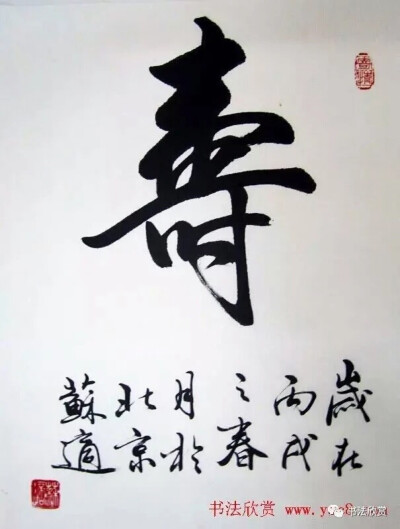 壽
歲在
丙戌
之春
月於
北京
蘇適
书法欣赏
书法欣赏